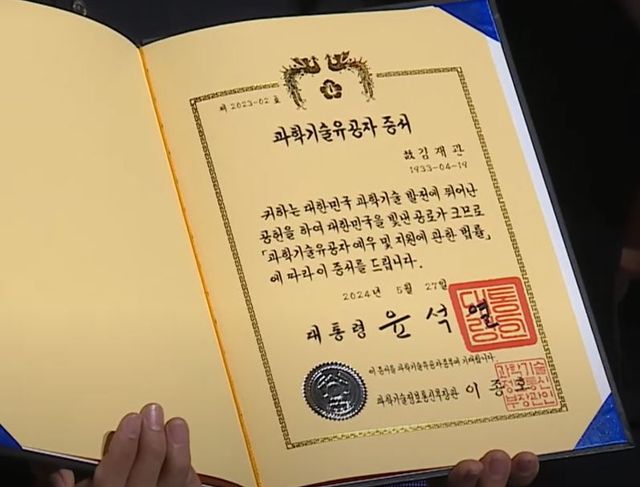 제 2023-02 호
과학기술유공자 증서
故 김 재 관
1933-04-19
귀하는 대한민국 과학기술 발전에 뛰어난
공헌을 하여 대한민국을 빛낸 공로가 크므로
「과학기술유공자 예우 및 지원에 관한 법률」
에 따라 이 증서를 드립니다.
2024년 5월 27일
대통령 윤 석 열
대통령의인
이 증서를 과학기술유공자증서부에 기재합니다.
과학기술정보통신부장관 이 종 호
과학기술
정보통신
부장관인